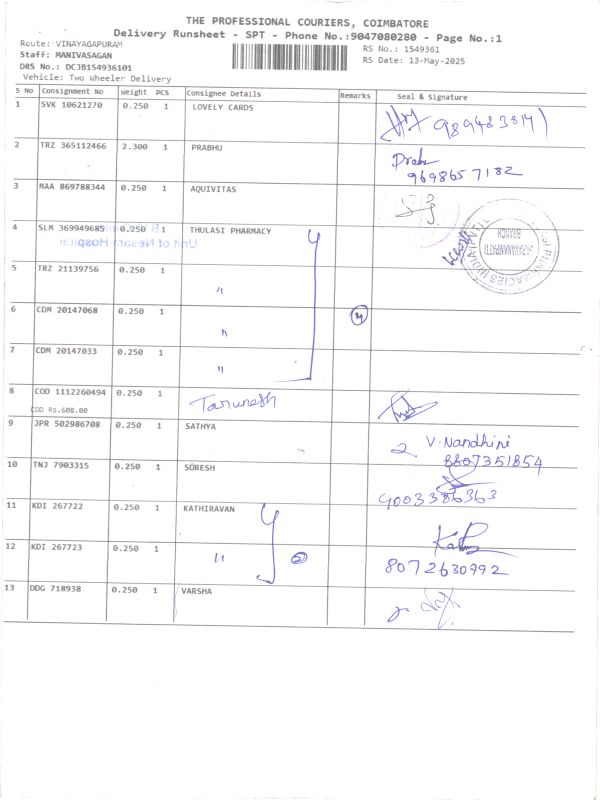 THE PROFESSIONAL COURIERS, COIMBATORE
Delivery Runsheet - SPT - Phone No.:9047080280 - Page No.:1
Route: VINAYAGAPURAM
RS No.: 1549361
Staff: MANIVASAGAN
RS Date: 13-May-2025
DRS No.: DCJB154936101
Vehicle: Two Wheeler Delivery
S No Consignment No Weight PCS Consignee Details Remarks Seal & Signature
1 SVK 10621270 0.250 1 LOVELY CARDS
9894838141
2 TRZ 365112466 2.300 1 PRABHU
Prabu
9698657182
3 MAA 869788344 0.250 1 AQUIVITAS
4 SLM 369949685 0.250 1 THULASI PHARMACY
Hospital
BRANCH
PHARMACIES INDIA
5 TRZ 21139756 0.250 1 "
6 CDM 20147068 0.250 1 " 4
7 CDM 20147033 0.250 1 "
8 COD 1112260494 0.250 1 Tarunesh
COD Rs.608.00
9 JPR 502986708 0.250 1 SATHYA
2 V. Nandhini
8807351854
10 TNJ 7903315 0.250 1 SURESH
9003386363
11 KDI 267722 0.250 1 KATHIRAVAN
12 KDI 267723 0.250 1 " 2
8072630992
13 DDG 718938 0.250 1 VARSHA